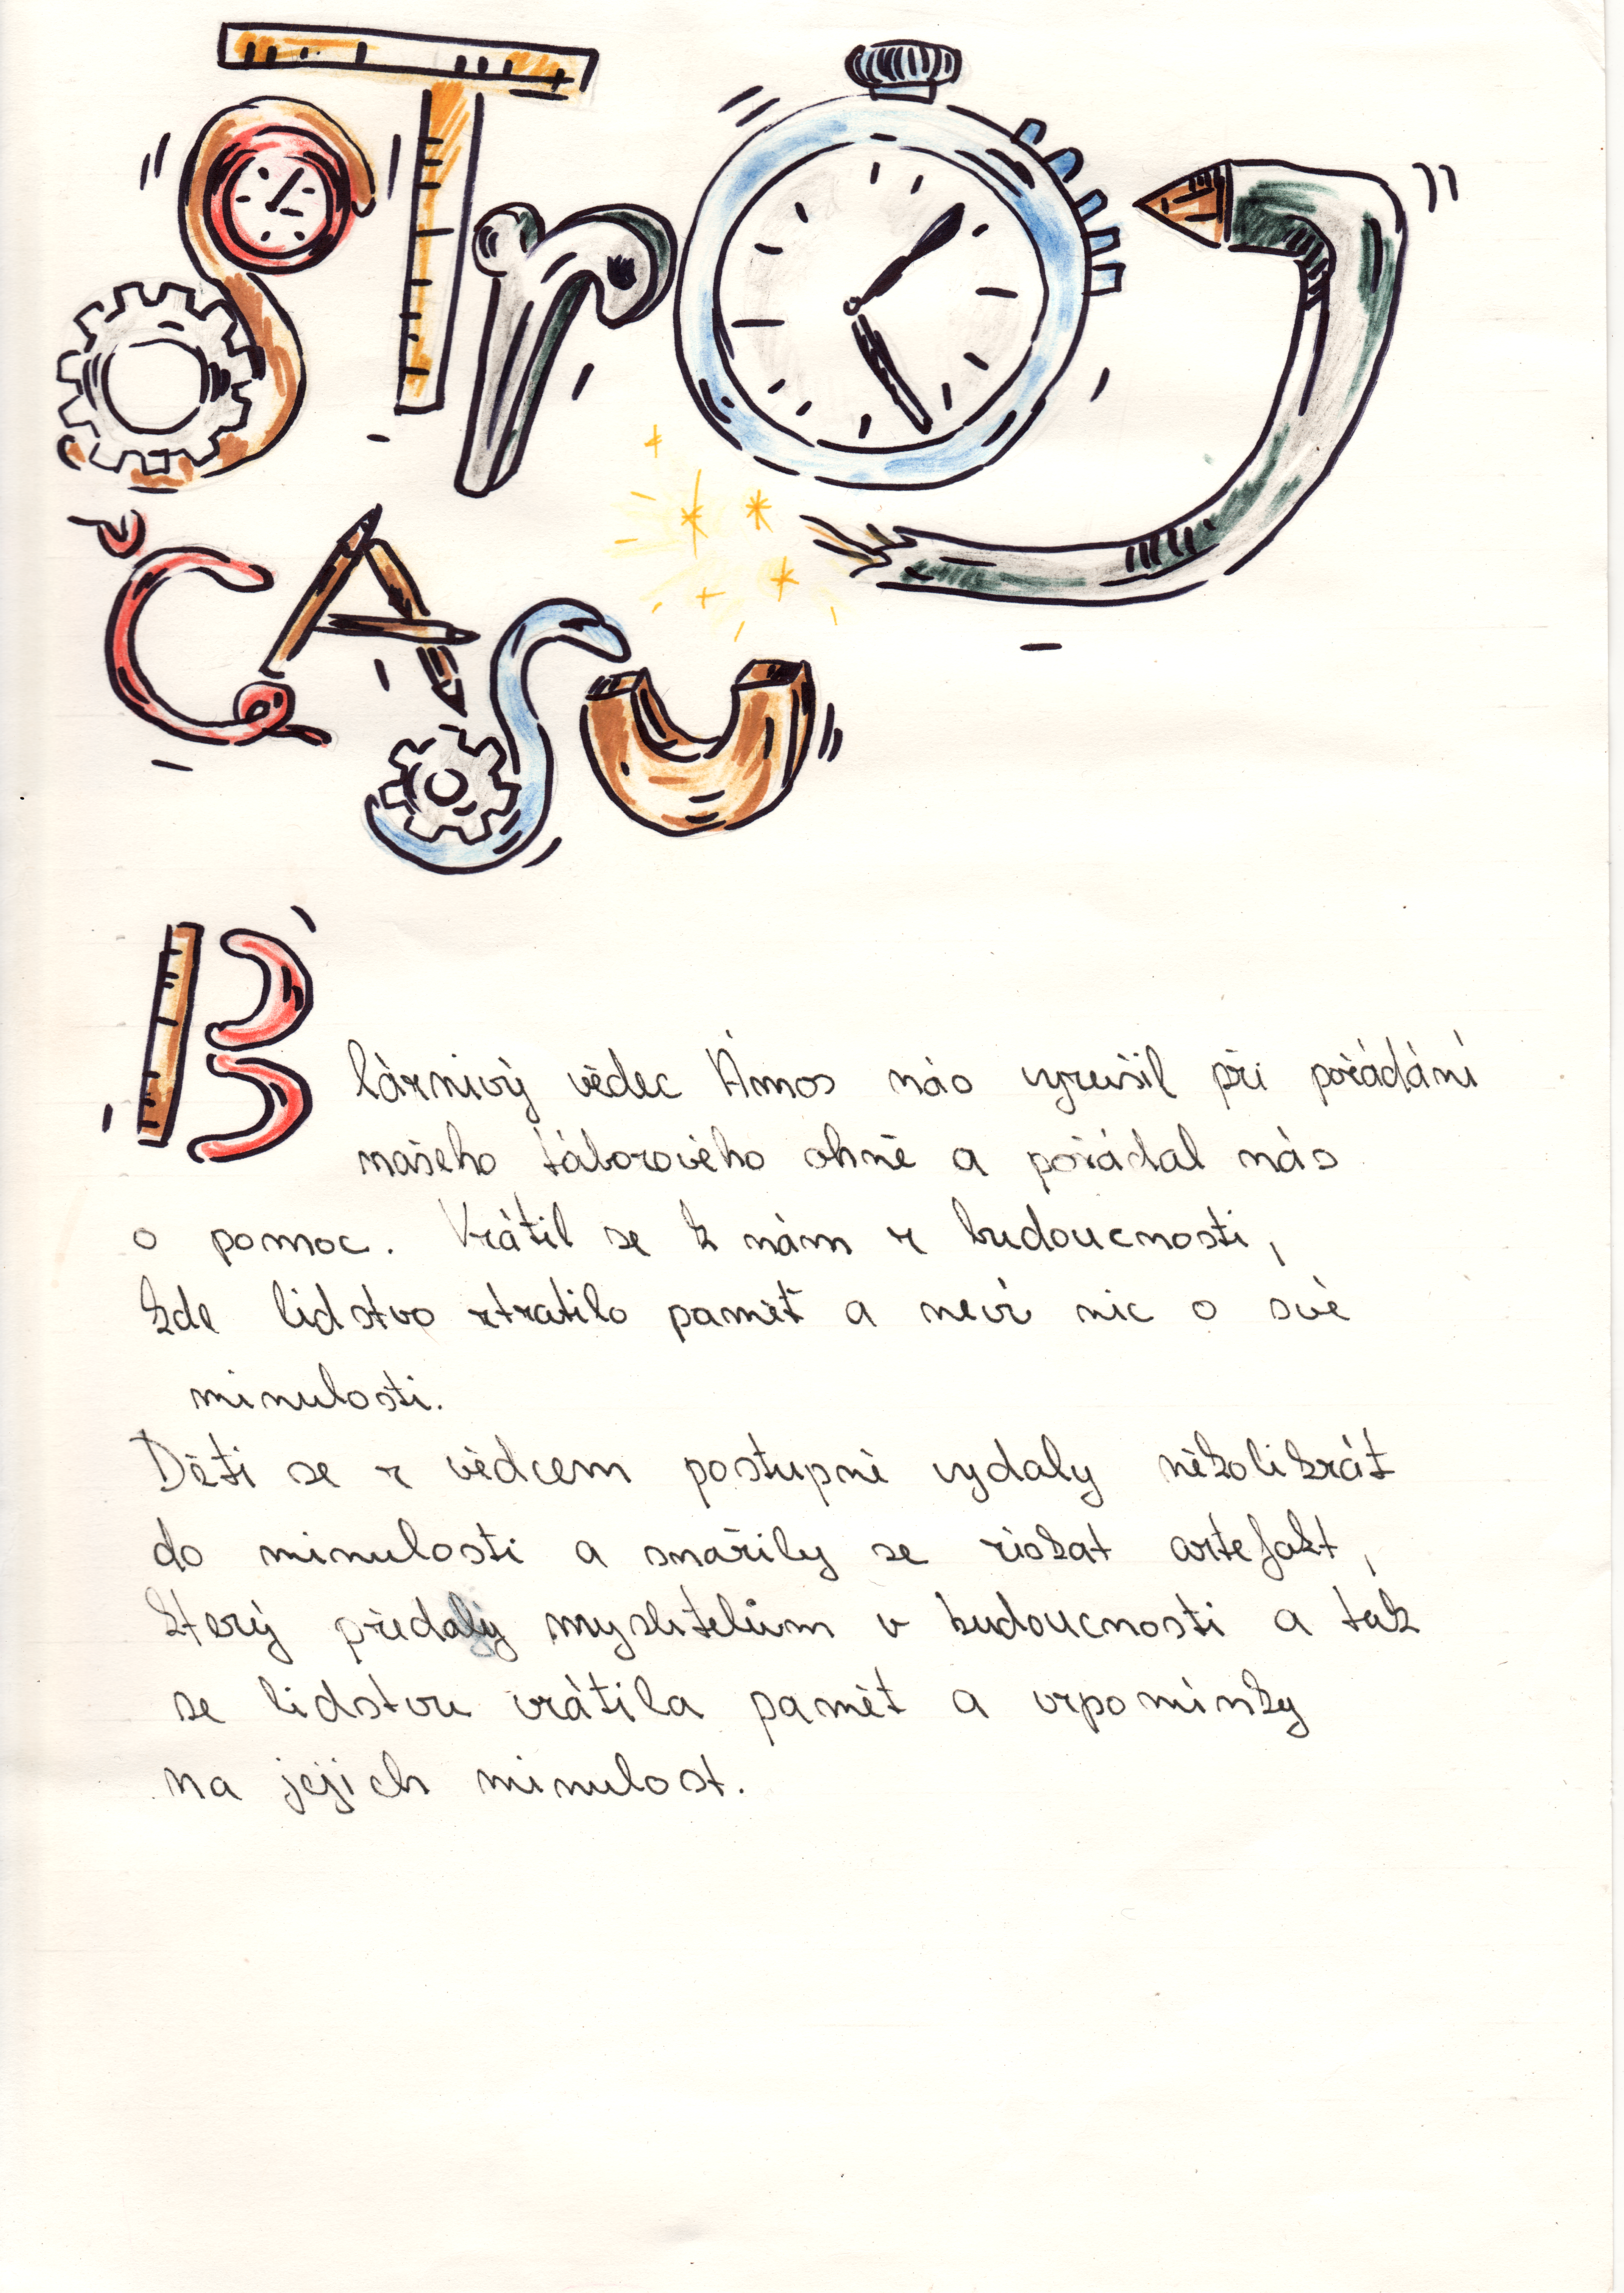 STrOJ
ČASU
Bláznivý vědec Ámos nás vyrušil při pořádání
našeho táborového ohně a požádal nás
o pomoc. Vrátil se k nám z budoucnosti,
kde lidstvo ztratilo paměť a neví nic o své
minulosti.
Děti se z vědcem postupně vydaly několikrát
do minulosti a snažily se získat artefakt,
který předaly myslitelům v budoucnosti a tak
se lidstvu vrátila paměť a vzpomínky
na jejich minulost.